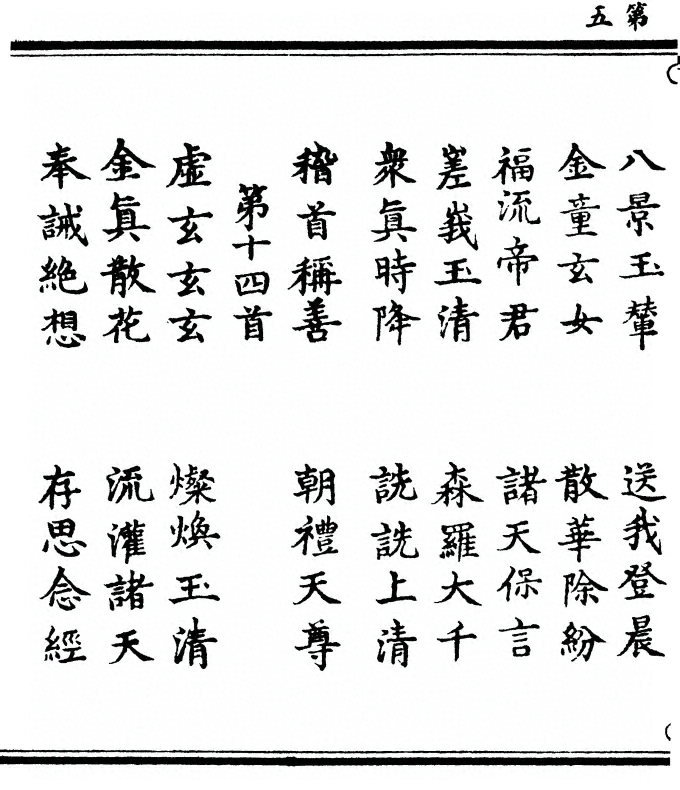 第五
八景玉輦 送我登晨
金童玄女 散華除紛
福流帝君 諸天保言
嵳峩玉清 森羅大千
衆眞時降 詵詵上清
稽首稱善 朝禮天尊
第十四首
虛玄玄玄 燦煥玉清
金眞散花 流灌諸天
奉誡絶想 存思念經